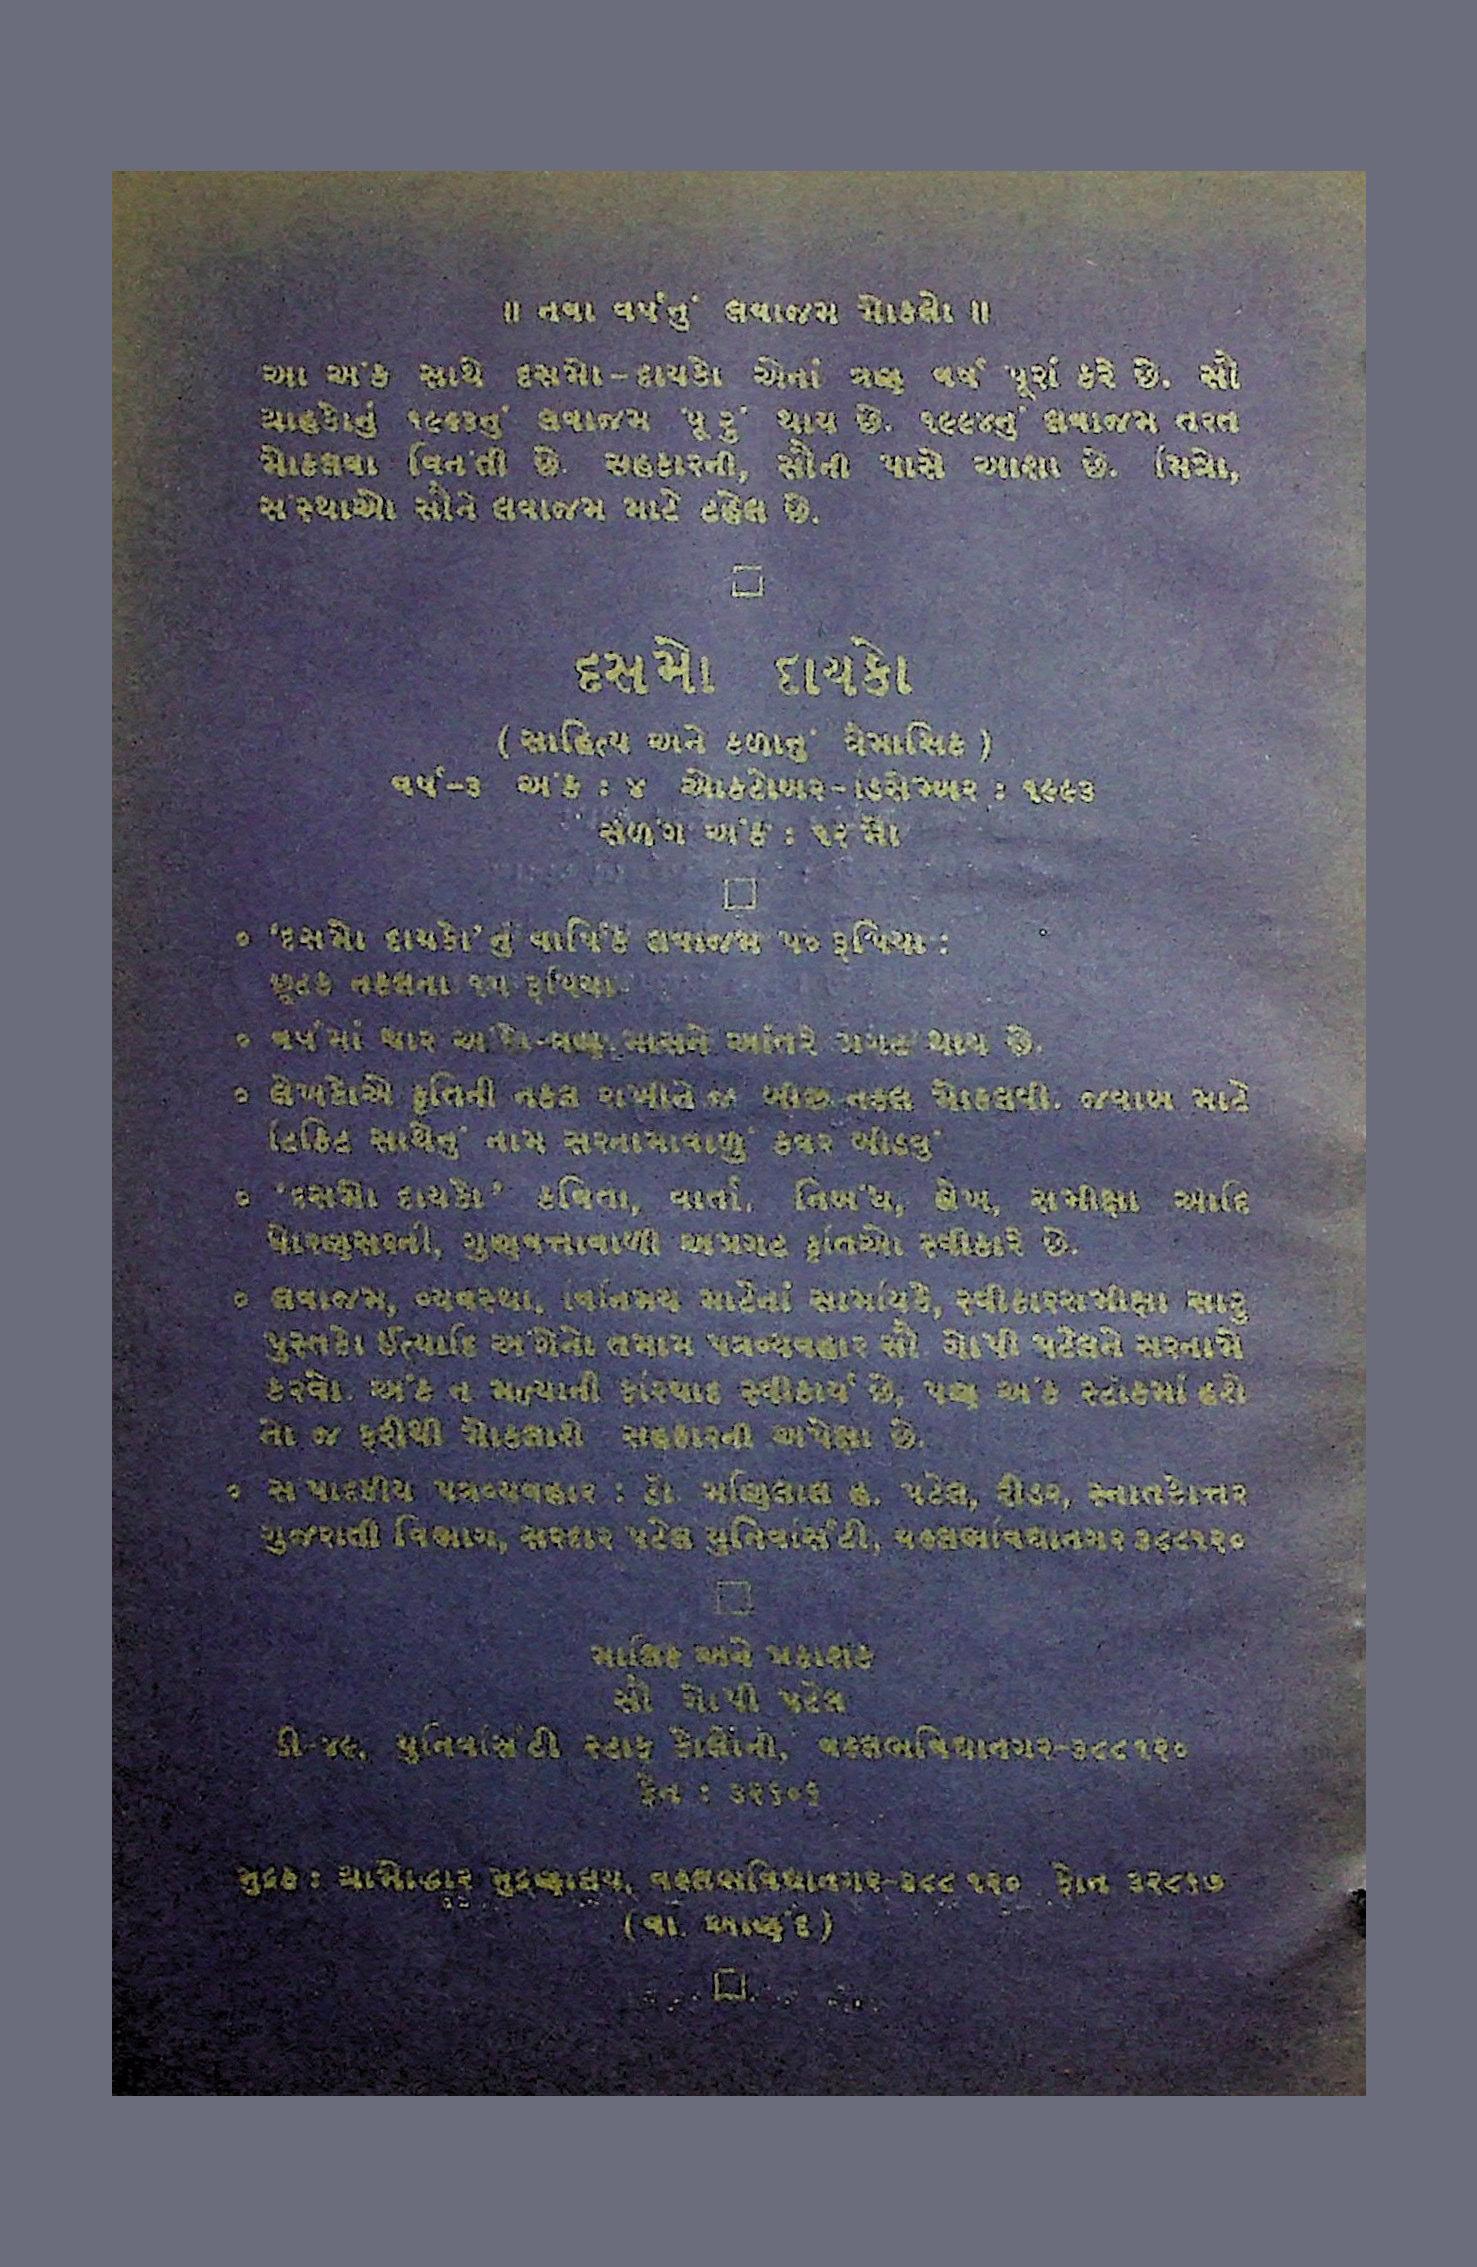 ॥ નવા વર્ષનું લવાજમ મોકલો ॥
આ અંક સાથે દસમો-દાયકો એનાં ત્રણ વર્ષ પૂરાં કરે છે. સૌ
ગ્રાહકોનું ૧૯૯૩નું લવાજમ પૂરું થાય છે. ૧૯૯૪નું લવાજમ તરત
મોકલવા વિનંતી છે. સહકારની, સૌની પાસે આશા છે. મિત્રો,
સંસ્થાઓ સૌને લવાજમ માટે ટહેલ છે.
દસમો દાયકો
(સાહિત્ય અને કળાનું ત્રૈમાસિક)
વર્ષ-૩ અંક : ૪ ઓકટોબર-ડિસેમ્બર : ૧૯૯૩
સળંગ અંક : ૧૨મો
૦ ‘દસમો દાયકો’નું વાર્ષિક લવાજમ ૫૦ રૂપિયા :
છૂટક નકલના ૧૫ રૂપિયા
૦ વર્ષમાં ચાર અંકો-ત્રણ માસને આંતરે પ્રગટ થાય છે.
૦ લેખકોએ કૃતિની નકલ રાખીને જ બીજી નકલ મોકલવી. જવાબ માટે
ટિકિટ સાથેનું નામ સરનામાવાળું કવર બીડવું
૦ ‘દસમો દાયકો’ કવિતા, વાર્તા, નિબંધ, લેખ, સમીક્ષા આદિ
ધોરણસરની, ગુણવત્તાવાળી અપ્રગટ કૃતિઓ સ્વીકારે છે.
૦ લવાજમ, વ્યવસ્થા, વિનિમય માટેનાં સામયિકે, સ્વીકારસમીક્ષા સારુ
પુસ્તકો ઈત્યાદિ અંગેનો તમામ પત્રવ્યવહાર સૌ. ગોપી પટેલને સરનામે
કરવો. અંક ન મળ્યાની ફરિયાદ સ્વીકાર્ય છે, પણ અંક સ્ટોકમાં હશે
તો જ ફરીથી મોકલાશે સહકારની અપેક્ષા છે.
૦ સંપાદકીય પત્રવ્યવહાર : ડૉ. મણિલાલ હ. પટેલ, રીડર, સ્નાતકોત્તર
ગુજરાતી વિભાગ, સરદાર પટેલ યુનિવર્સિટી, વલ્લભવિદ્યાનગર ૩૮૮૧૨૦
માલિક અને પ્રકાશક
સૌ ગોપી પટેલ
ડી-૪૯, યુનિવર્સિટી સ્ટાફ કૉલોની, વલ્લભવિદ્યાનગર-૩૮૮૧૨૦
ફોન : ૩૨૬૦૬
મુદ્રક : ગ્રામોદ્ધાર મુદ્રણાલય, વલ્લભવિદ્યાનગર-૩૮૮ ૧૨૦ ફોન ૩૨૮૧૭
(વા. આણંદ)